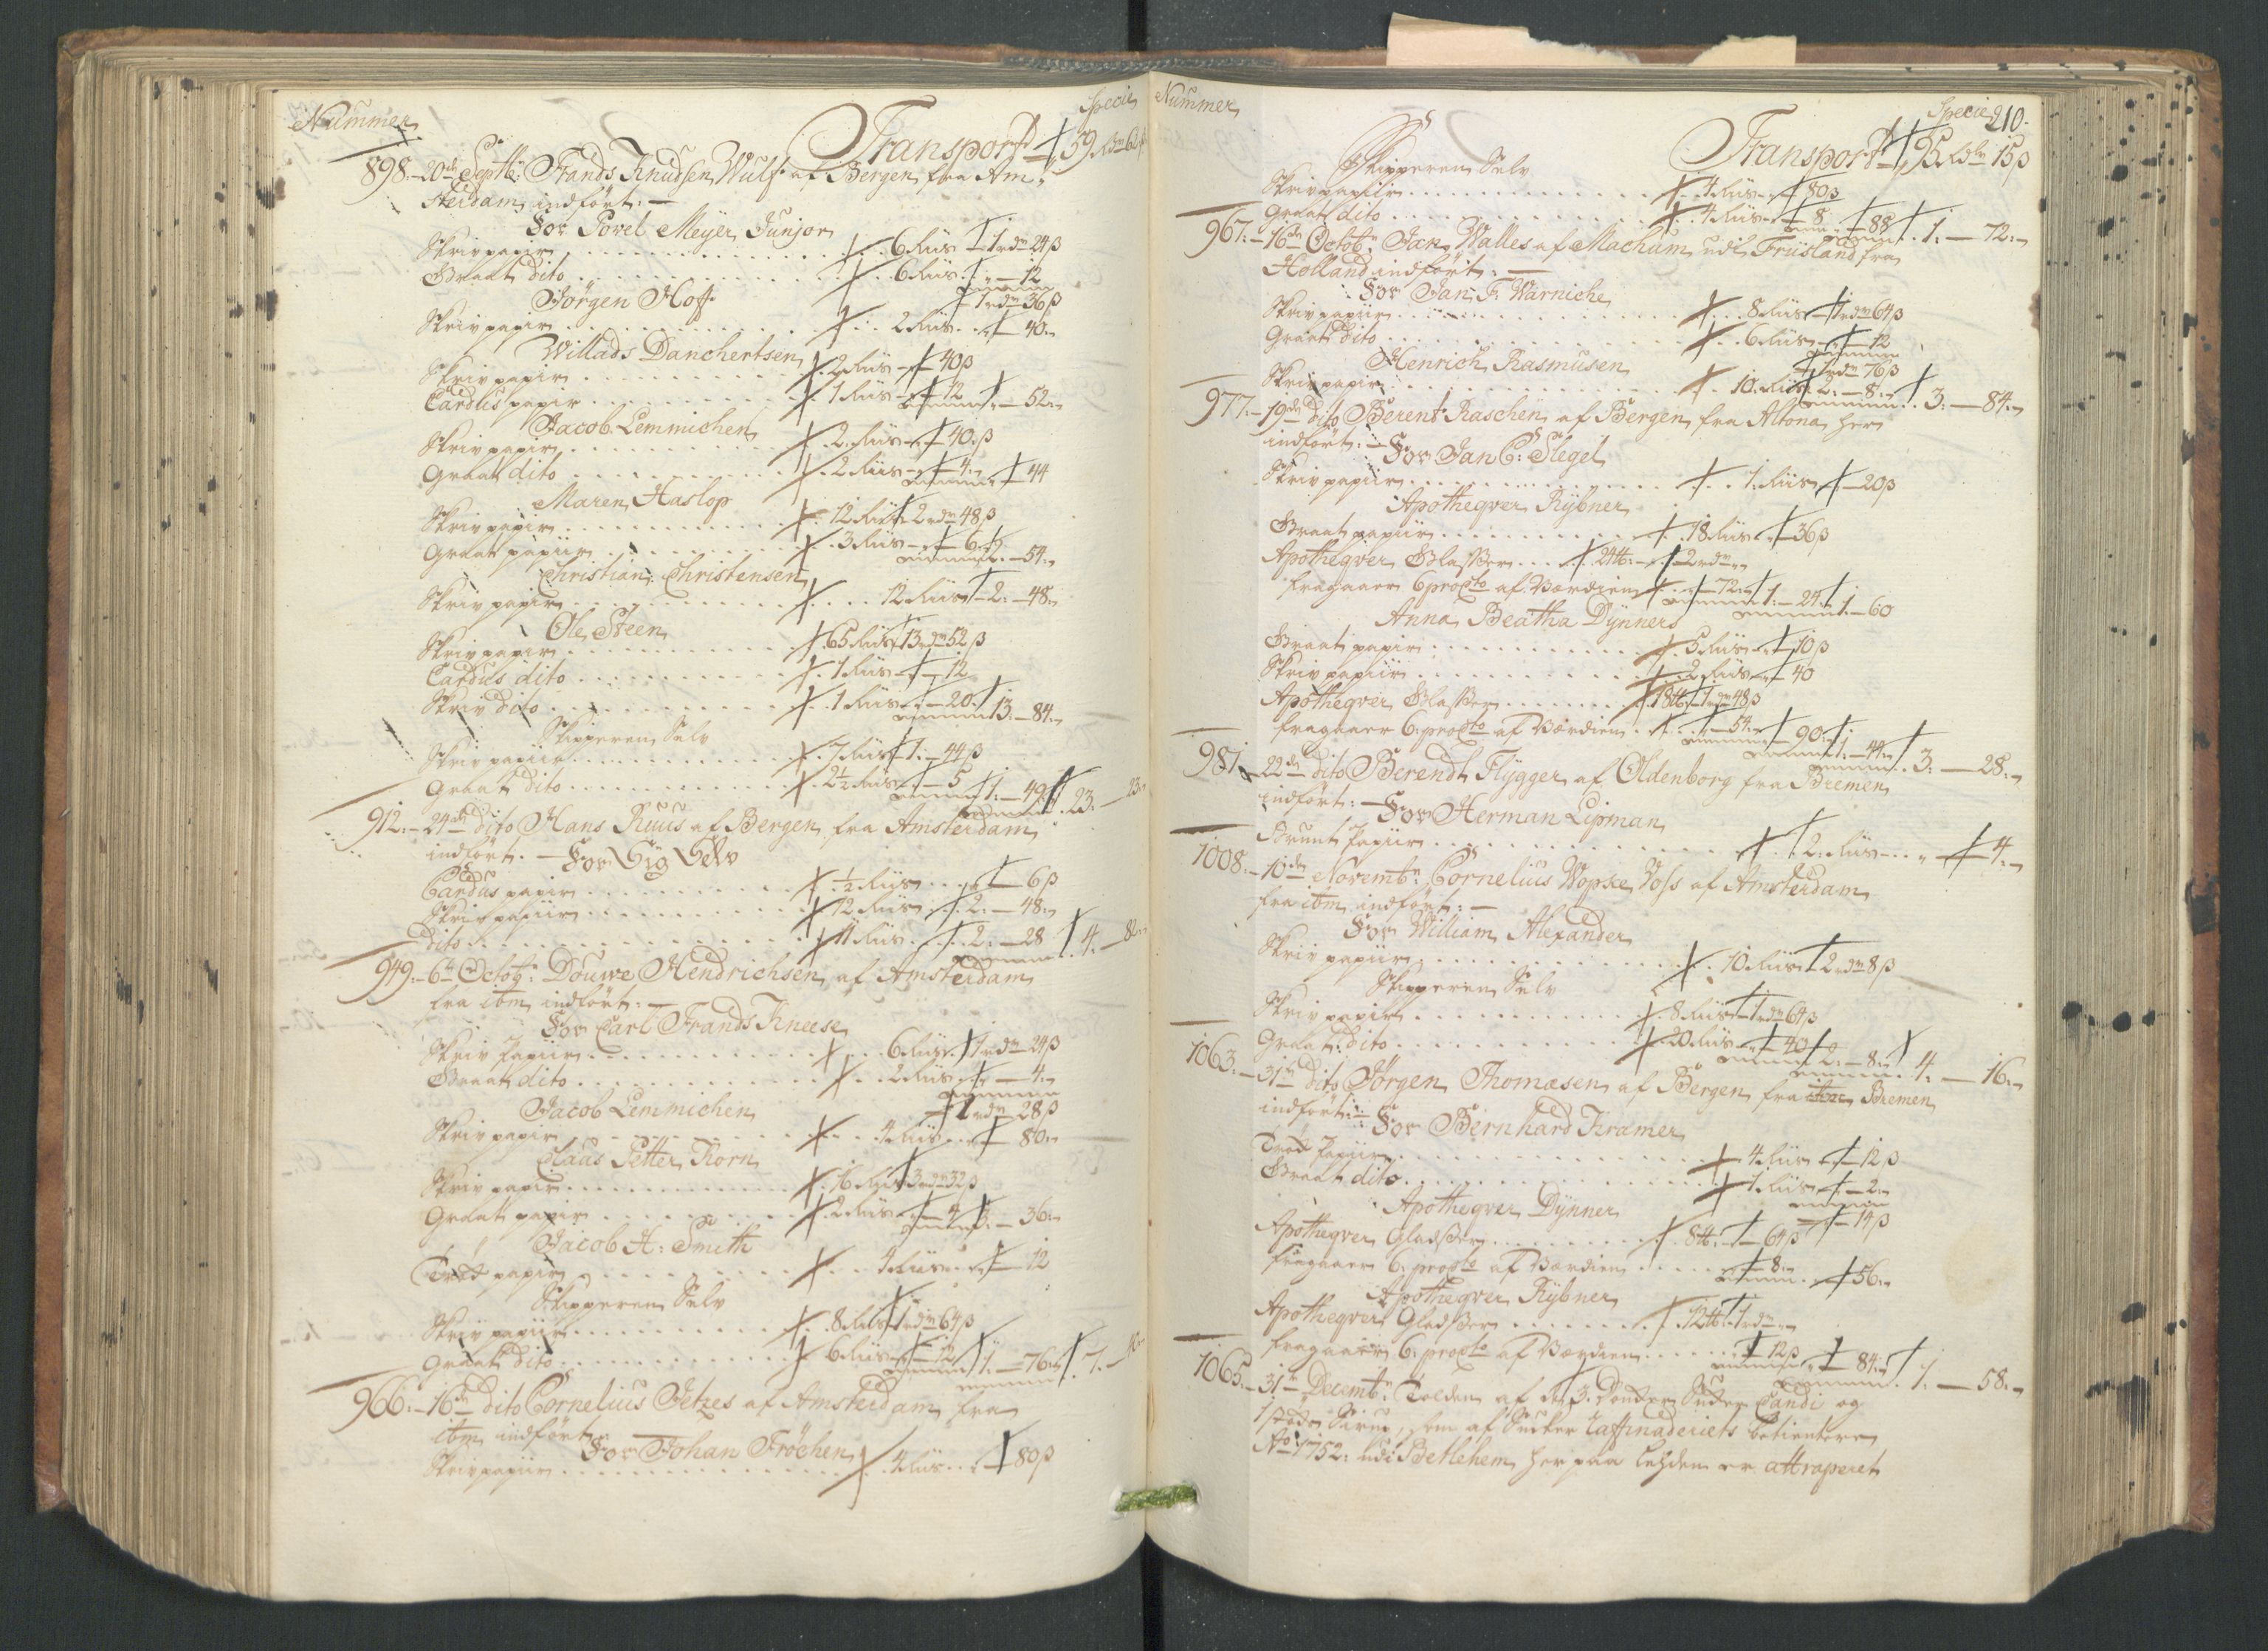 Nummer Specie
Transport 59 rdr 62 β
898. 20de Septbr: Frands Knudsen Wulf af Bergen fra Am-
sterdam indfört:
For Povel Meyer Junior
Skriv papir 6 Riis 1 rdr 24 β
Graat dito 6 Riis " 12
1 rdr 36 β
Jörgen Hoff
Skriv papir 2 Riis " 40
Willads Danchertsen
Skriv papir 2 Riis " 40 β
Cardus papir 1 Riis " 12 " 52
Jacob Lemmichen
Skriv papir 2 Riis " 40 β
Graat dito 2 Riis " 4 " 44
Maren Haslop
Skriv papir 12 Riis 2 rdr 48 β
Graat papiir 3 Riis " 6 2. 54
Christian Christensen
Skriv papir 12 Riis 2. 48
Ole Steen
Skriv papir 65 Riis 13 rdr 52 β
Cardus dito 1 Riis " 12
Skriv dito 1 Riis " 20 13. 84
Skipperen Selv
Skriv papiir 7 Riis 1. 44 β
Graat dito 2½ Riis " 5 1. 49 23. 23
912. 24de dito Hans Ruus af Bergen fra Amsterdam
indfört. For Sig Selv
Cardus papir ½ Riis " 6 β
Skriv papiir 12 Riis 2. 48
dito 11 Riis 2. 28 4. 82
949. 6te Octobr: Douwe Hendrichsen af Amsterdam
fra ibm indfört:
For Carl Frands Kneese
Skriv papiir 6 Riis 1 rdr 24 β
Graat dito 2 Riis " 4
1 rdr 28 β
Jacob Lemmichen
Skriv papir 4 Riis " 80
Claus Petter Korn
Skriv papir 16 Riis 3 rdr 32 β
Graat papir 2 Riis " 4 3. 36
Jacob A: Smith
Tröt papir 4 Riis " 12
Skipperen Selv
Skriv papiir 8 Riis 1 rdr 64 β
Graat dito 6 Riis " 12 1. 76 7.
966. 16de dito Cornelius Jetzes af Amsterdam fra
ibm indfört
For Johan Fröchen
Skriv papiir 4 Riis " 80 β
Nummer Specie 210.
Transport 95 rdlr 15 β
Skipperen Selv
Skriv papiir 4 Riis " 80 β
Graat dito 4 Riis " 8 " 88 1. 72
967. 16de Octobr: Jan Walles af Machum udi Friisland fra
Holland indfört:
For Jan F. Warniche
Skriv papiir 8 Riis 1 rdr 64 β
Graat dito 6 Riis " 12
1 rdr 76 β
Henrich Rasmusen
Skriv papir 10 Riis 2. 8 3. 84
977. 19de dito Berent Raschen af Bergen fra Altona her
indfört: For Jan C: Slegel
Skriv papiir 1 Riis 20 β
Apotheqver Rybner
Graat papiir 18 Riis " 36 β
Apotheqver Glasser 24 ℔ 2 rdr "
fragaaer 6 proCto af Værdien " 72 1. 24 1. 60
Anna Beatha Dynners
Graat papir 5 Riis " 10 β
Skriv papiir 2 Riis " 40
Apotheqver Glasser 18 ℔ 1 rdr 48 β
fragaaer 6 proCto af Værdien " 54 " 90 1. 44 3. 28
987. 22de dito Berendt Flygger af Oldenborg fra Bremen
indfört: For Herman Lipman
Bruunt papiir 2 Riis " 4
1008. 10de Novembr: Cornelius Wopke Voss af Amsterdam
fra ibm indfört:
For William Alexander
Skriv papiir 10 Riis 2 rdr 8 β
Skipperen Selv
Skriv papiir 8 Riis 1 rdr 64 β
Graat dito 20 Riis " 40 2. 8 4. 16
1063. 31te dito Jörgen Thomæsen af Bergen fra ibm Bremen
indfört: For Bernhard Kramer
Tröt papiir 4 Riis " 12 β
Graat dito 1 Riis " 2
" 14 β
Apotheqver Dynner
Apotheqver Gladsser 8 ℔ " 64 β
fragaaer 6 proCto af Værdien " 8 " 56
Apotheqver Rybner
Apotheqver Gladsser 12 ℔ 1 rdr "
fragaaer 6 proCto af Værdien 12 β " 84 1. 58
1065. 31te Decembr: Tolden af de 3. Candi og
Sirup, som af Sucker Raffinaderiets betientere
Ao 1752: udi Betlehem her paa er attraperet